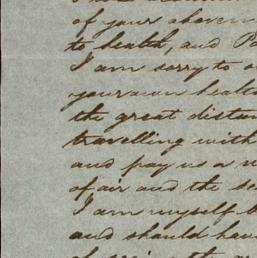 of your
to health, and
I am sorry to
your own health
the great distan
travelling with
and pay us a
of air and the se
I am myself
and should hav